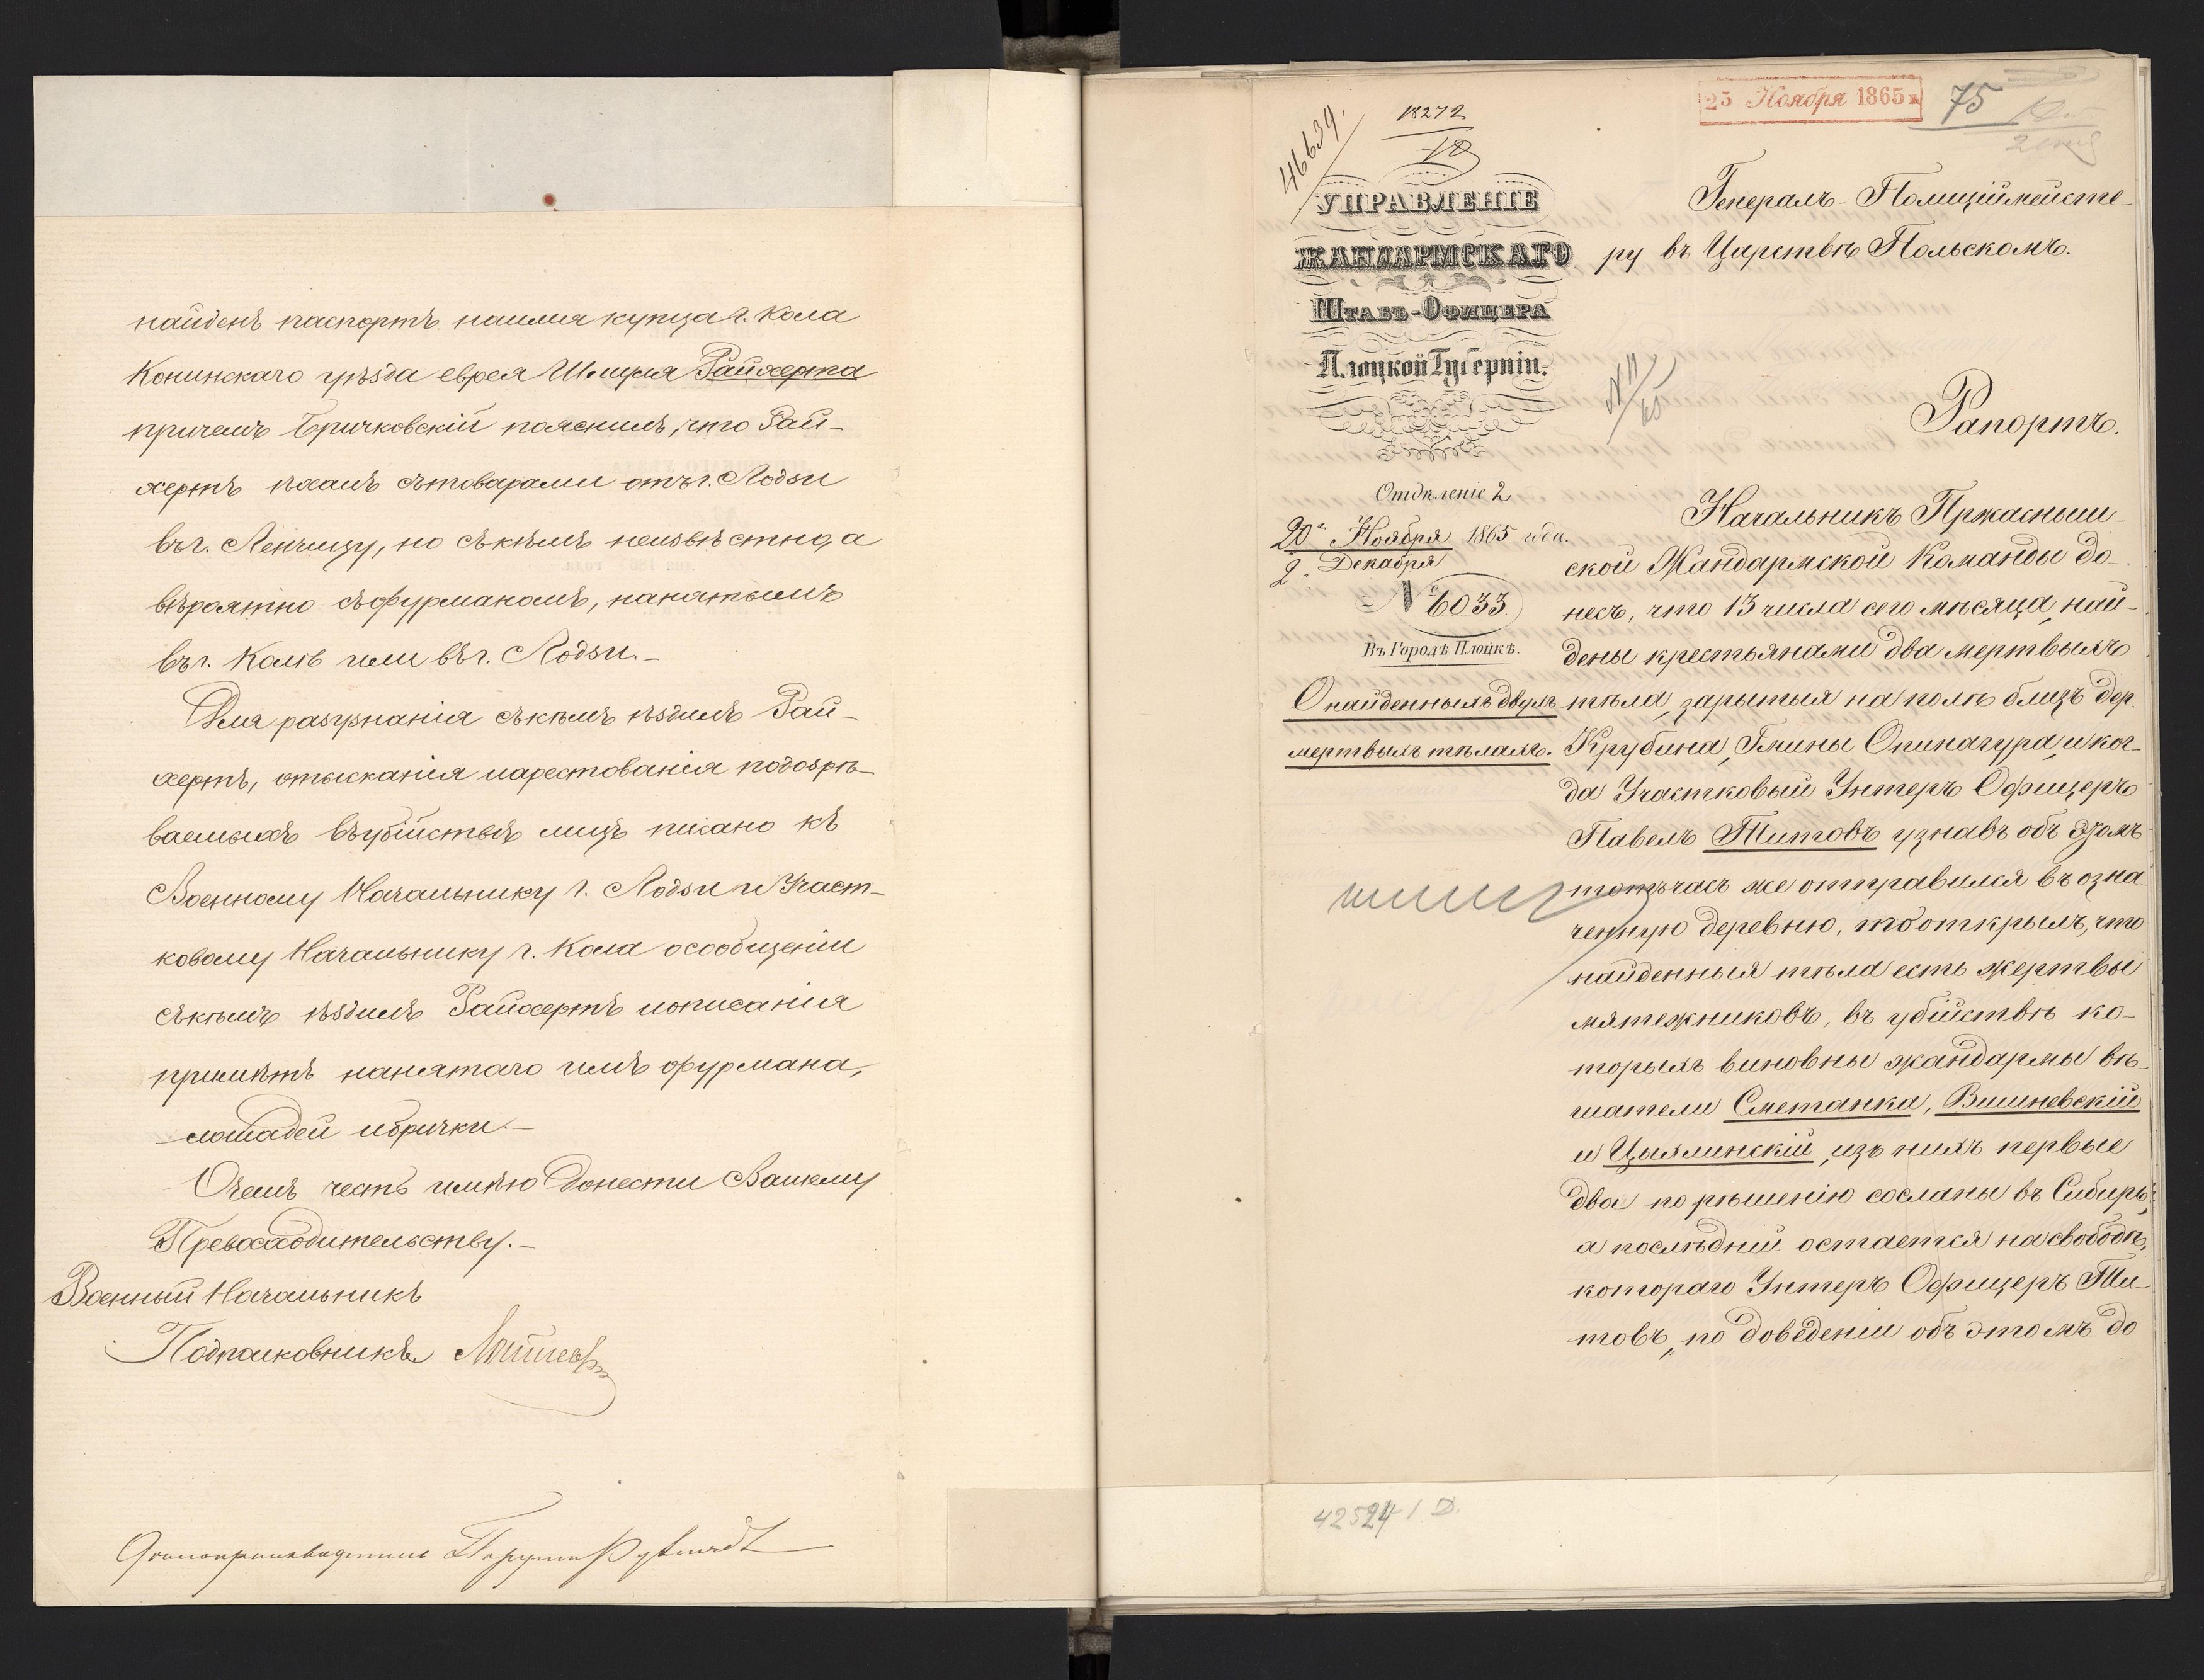 найденъ паспортъ на имя купца г. Кола
Конинскаго уѣзда еврея Шмуля Райхерта
причемъ Бричковскій пояснилъ, что Рай-
хертъ ѣхалъ съ товарами отъ г. Лодзи
въ г. Ленчицу, но съ кѣмъ неизвѣстно, а
вѣроятно съ фурманомъ, нанятымъ
въ г. Колѣ или въ г. Лодзи.-
Для разузнанія съ кѣмъ ѣздилъ Рай-
хертъ, отысканія и арестованія подозрѣ-
ваемыхъ въ убійствѣ лицъ писано къ
Военному Начальнику г. Лодзи и Участ-
ковому Начальнику г. Кола о сообщеніи
съ кѣмъ ѣздилъ Райхертъ и описанія
примѣтъ нанятаго имъ фурмана,
лошадей и брички.-
О чемъ честь имѣю донести Вашему
Превосходительству.-
Военный Начальникъ
Подполковникъ
Дѣлопроизводитель
25 Ноября 1865
75
46639.
18272
УПРАВЛЕНІЕ
ЖАНДАРМСКАГО
ШТАБЪ-ОФИЦЕРА
Плоцкой Губерніи.
Отдѣленіе 2
20 Ноября 1865 года.
2 Декабря
№ 6033
Въ Городѣ Плоцкѣ.
О найденныхъ двухъ
мертвыхъ тѣлахъ.
Генералъ-Полиціймейсте-
ру въ Царствѣ Польскомъ.
Рапортъ.
Начальникъ Пржасныш-
ской Жандармской Команды до-
несъ, что 13 числа сего мѣсяца, най-
дены крестьянами два мертвыхъ
тѣла, зарытыя на полѣ близъ дер.
Крубина, Гмины Опиногура, и ког-
да Участковый Унтеръ Офицеръ
Павелъ Титовъ узнавъ объ этомъ
тотъ часъ же отправился въ озна-
ченную деревню, то открылъ, что
найденныя тѣла есть жертвы
мятежниковъ, въ убійствѣ ко-
торыхъ виновны жандармы вѣ-
шатели Сметанка, Вишневскій
и Цыялинскій, изъ нихъ первые
два по рѣшенію сосланы въ Сибирь,
а послѣдній остается на свободѣ,
котораго Унтеръ Офицеръ Ти-
товъ, по доведеніи объ этомъ до
42524 1 D.